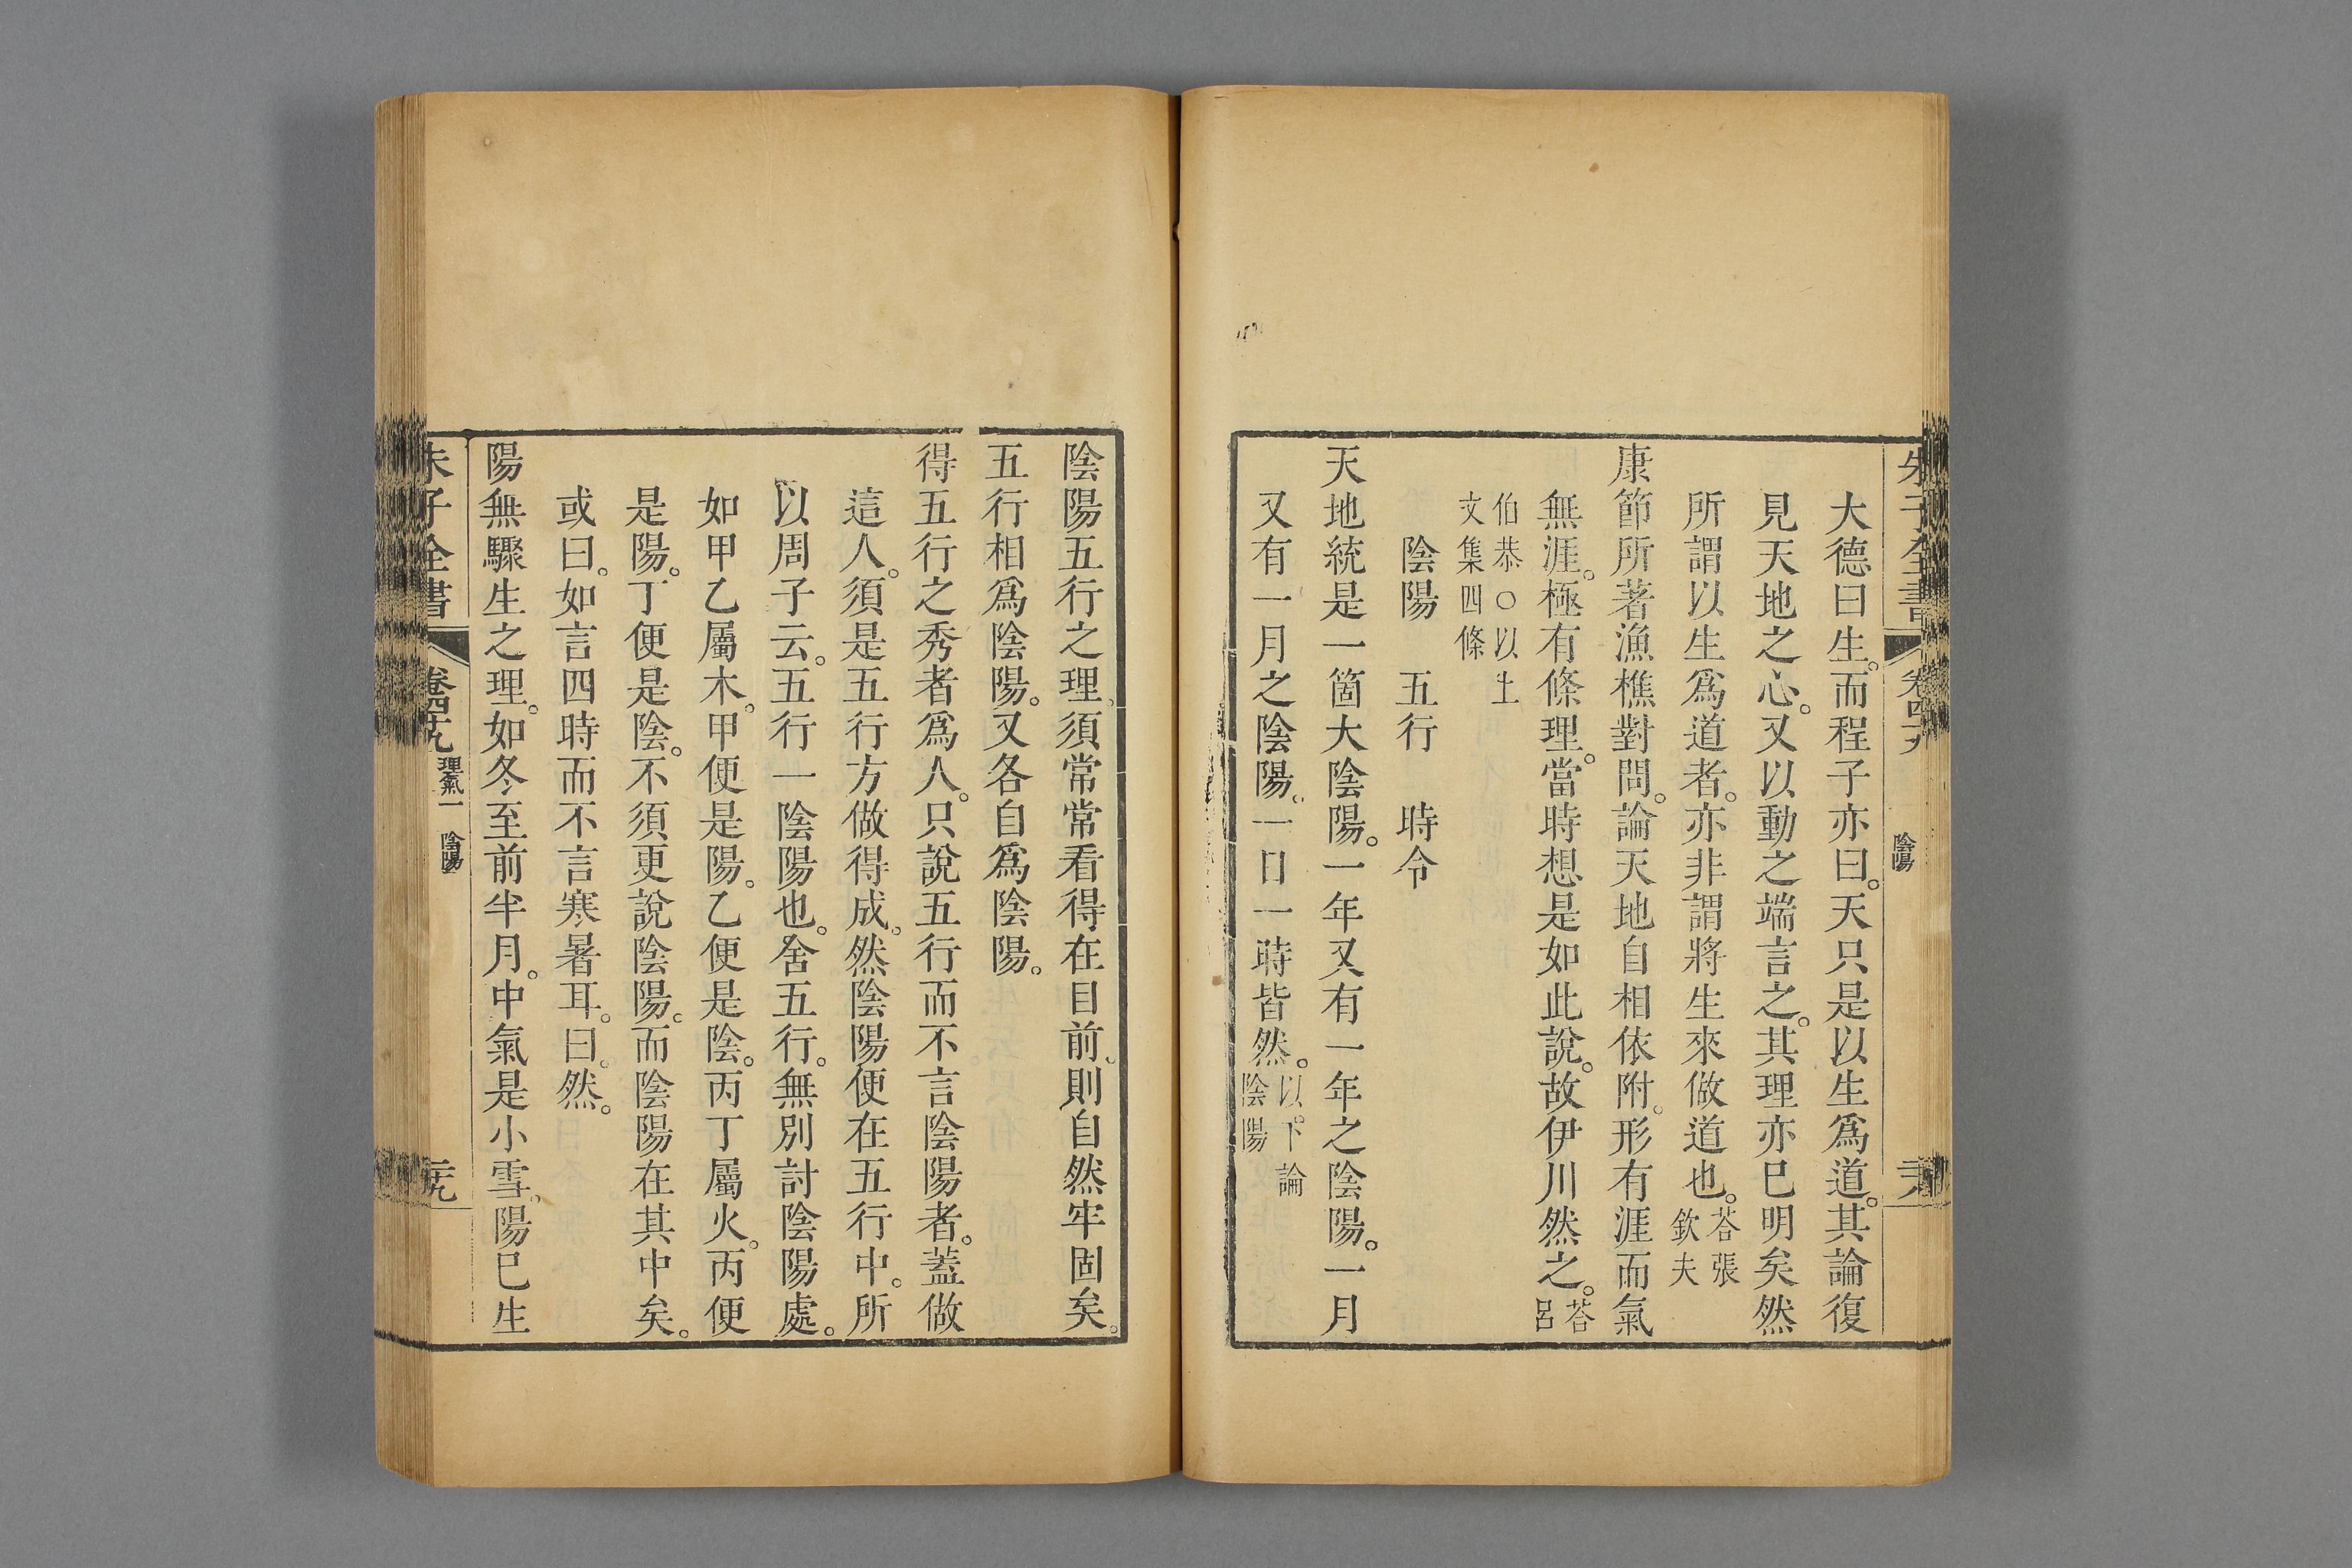 朱子全書 卷四十九 陰陽
大德曰生。而程子亦曰。天只是以生爲道。其論復
見天地之心。又以動之端言之。其理亦巳明矣然
所謂以生爲道者。亦非謂將生來做道也。荅張
欽夫
康節所著漁樵對問。論天地自相依附。形有涯而氣
無涯。極有條理。當時想是如此說。故伊川然之。荅呂
伯恭○以上
文集四條
陰陽 五行 時令
天地統是一箇大陰陽。一年又有一年之陰陽。一月
又有一月之陰陽。一日一時皆然。以下論
陰陽
陰陽五行之理。須常常看得在目前。則自然牢固矣。
五行相爲陰陽。又各自爲陰陽。
得五行之秀者爲人。只說五行而不言陰陽者。蓋做
這人。須是五行方做得成。然陰陽便在五行中。所
以周子云。五行一陰陽也。舍五行。無別討陰陽處。
如甲乙屬木。甲便是陽。乙便是陰。丙丁屬火。丙便
是陽。丁便是陰。不須更說陰陽。而陰陽在其中矣。
或曰。如言四時而不言寒暑耳。曰。然。
陽無驟生之理。如冬至前半月。中氣是小雪。陽巳生
朱子全書 卷四十九 理氣一 陰陽 二十九